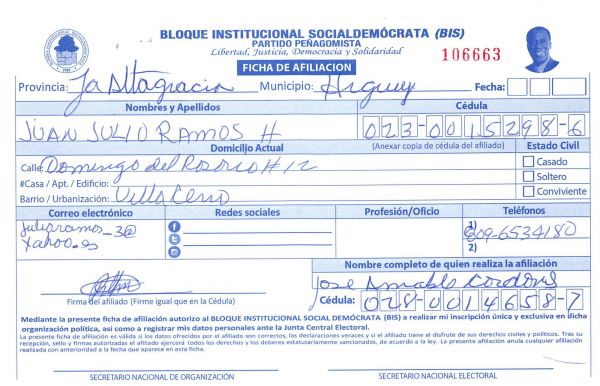 BLOQUE INSTITUCIONAL SOCIALDEMÓCRATA (BIS)
PARTIDO PEÑAGOMISTA
Libertad, Justicia, Democracia y Solidaridad
106663
FICHA DE AFILIACION
Provincia: La Altagracia Municipio: Higuey Fecha:
Nombres y Apellidos Cédula
JUAN JULIO RAMOS H 023-0015298-6
Domicilio Actual (Anexar copia de cédula del afiliado) Estado Civil
Calle: Domingo del Rosario # 12 Casado
#Casa / Apt. / Edificio: Soltero
Barrio / Urbanización: Villa Cerro Conviviente
Correo electrónico Redes sociales Profesión/Oficio Teléfonos
julioramos_3@
yahoo.es
1) 809-6534180
2)
Nombre completo de quien realiza la afiliación
Jose Amable
Firma del afiliado (Firme igual que en la Cédula) Cédula: 028-0014658-7
Mediante la presente ficha de afiliación autorizo al BLOQUE INSTITUCIONAL SOCIAL DEMÓCRATA (BIS) a realizar mi inscripción única y exclusiva en dicha
organización política, así como a registrar mis datos personales ante la Junta Central Electoral.
La presente ficha de afiliación es válida si los datos ofrecidos por el afiliado son correctos, las declaraciones veraces y si el afiliado tiene el disfrute de sus derechos civiles y políticos. Tras su
recepción, sello y firmas autorizadas el afiliado ejercerá todos los derechos y los deberes estatutariamente sancionados, de acuerdo a la ley. La presente afiliación anula cualquier afiliación
realizada con anterioridad a la fecha que aparece en esta ficha.
SECRETARIO NACIONAL DE ORGANIZACIÓN SECRETARIO NACIONAL ELECTORAL